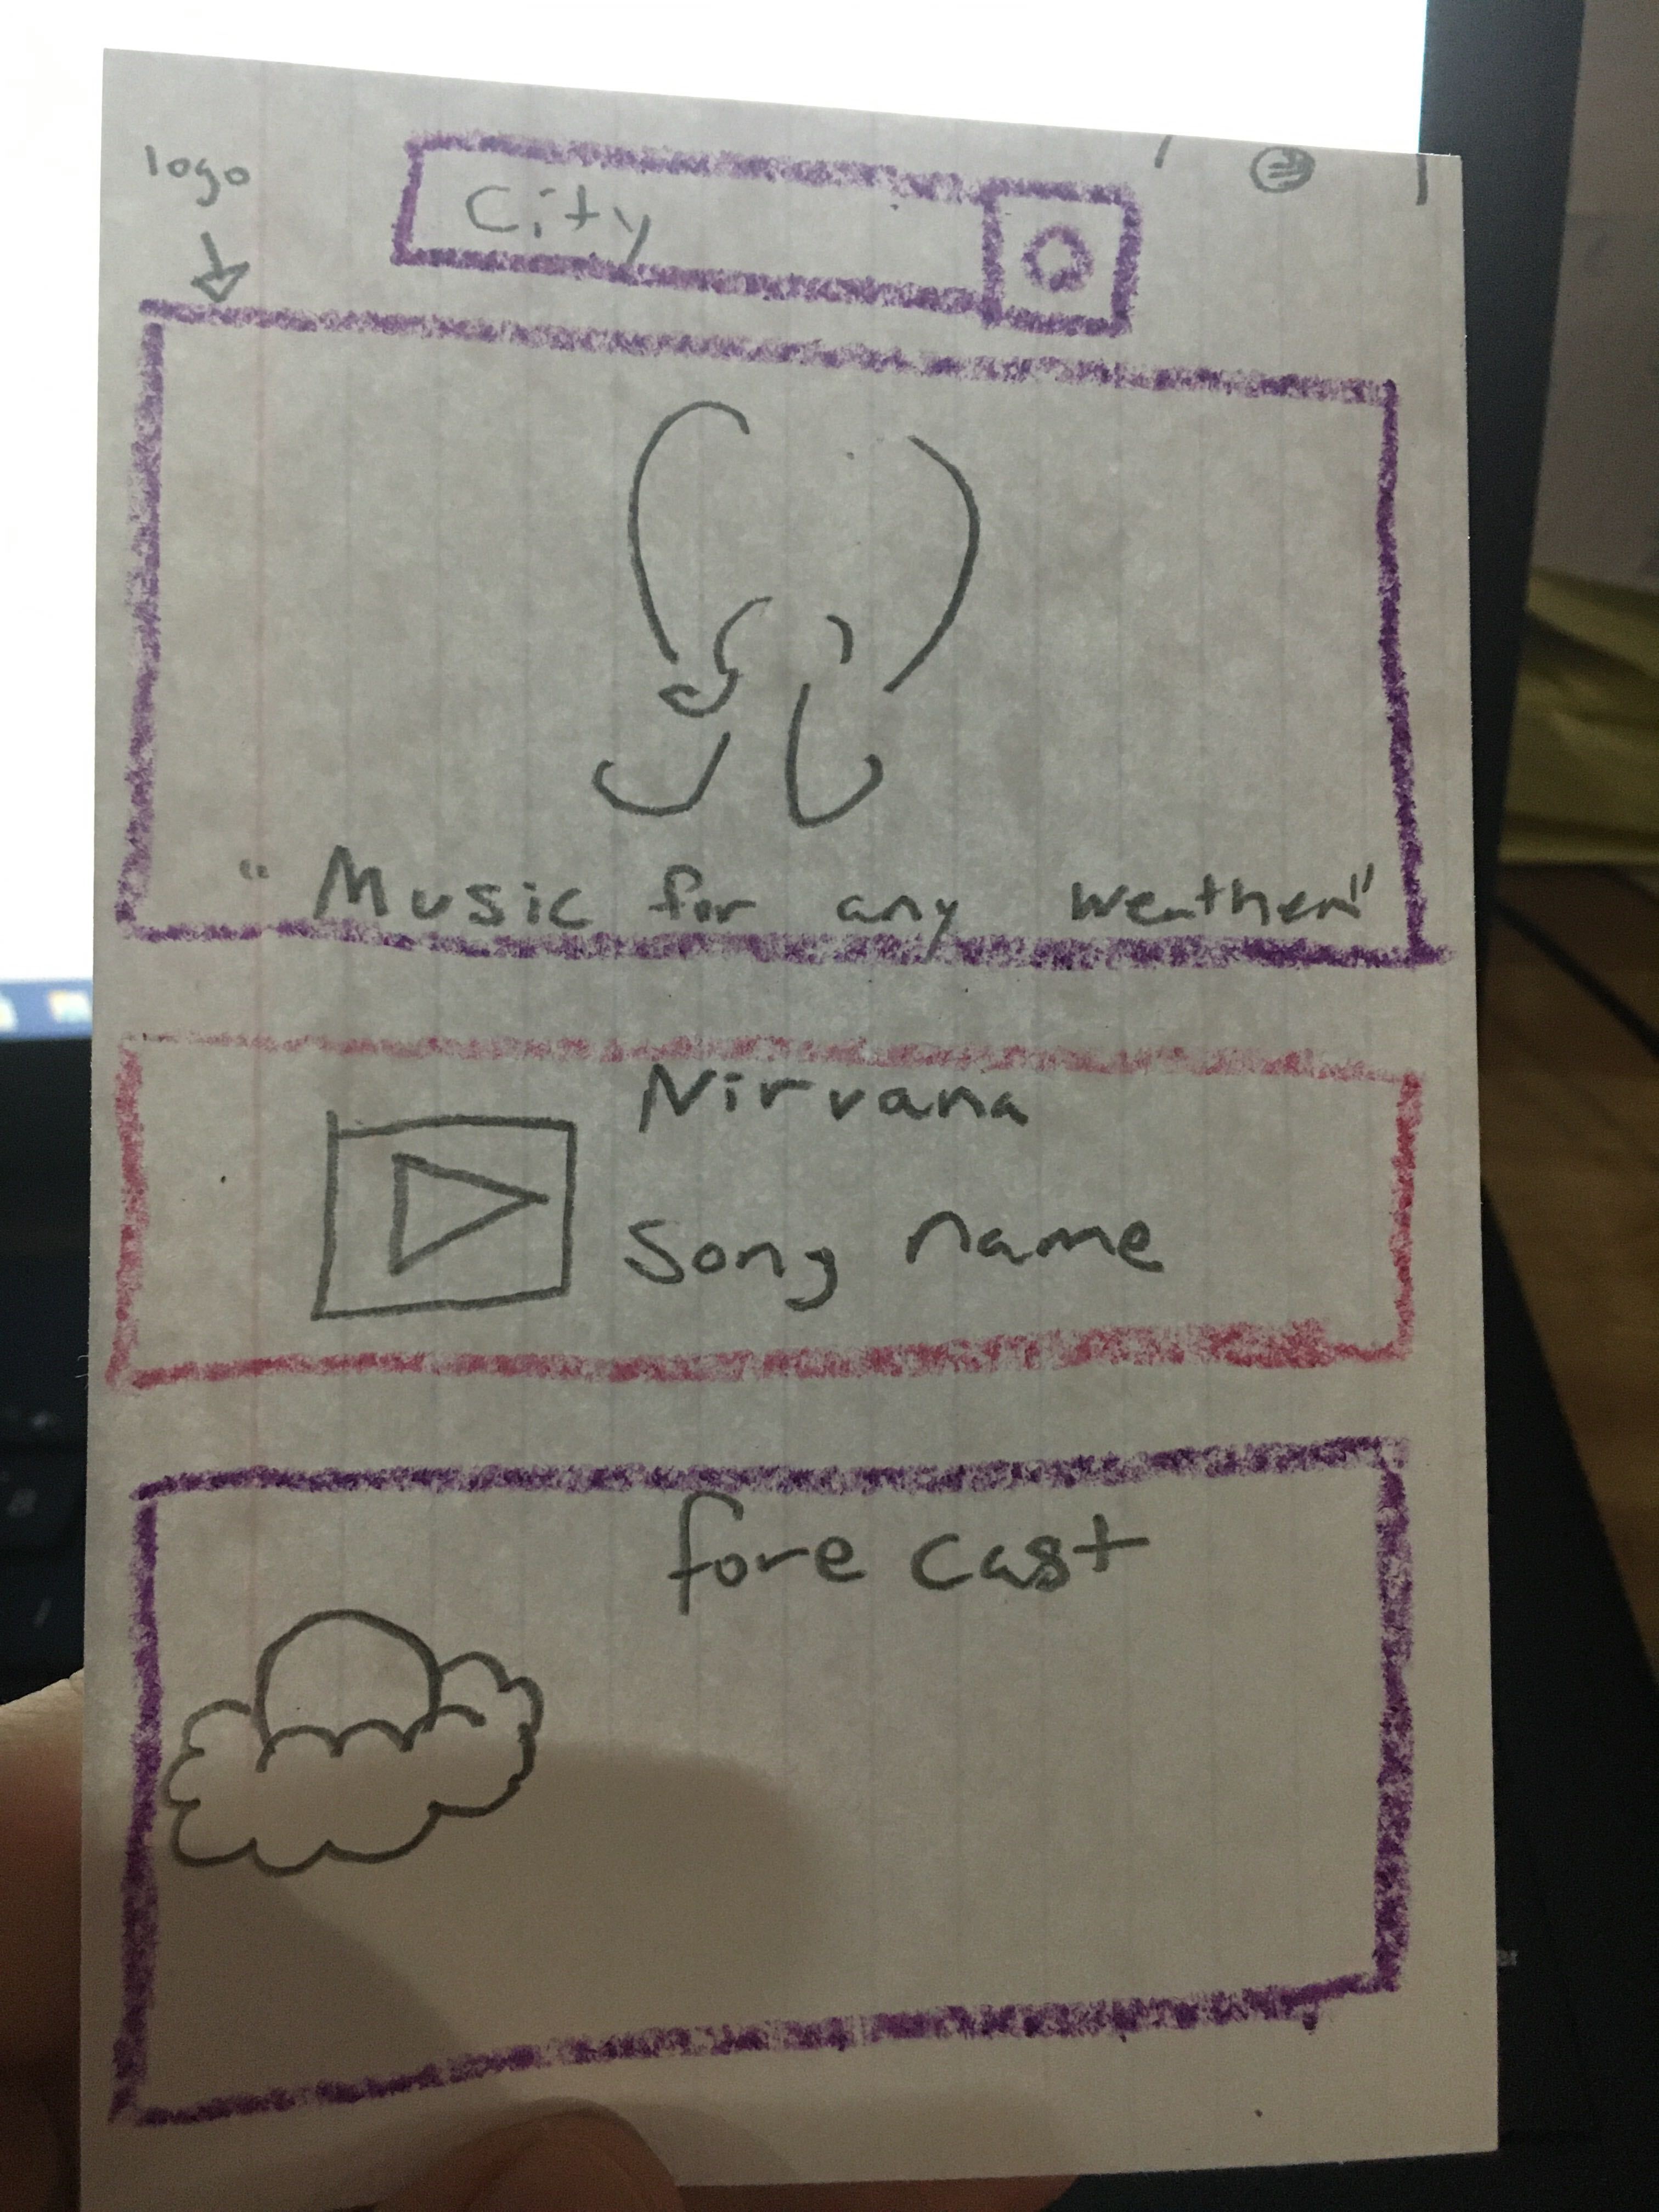 logo
City
" Music for any weather"
Nirvana
Song name
fore cast